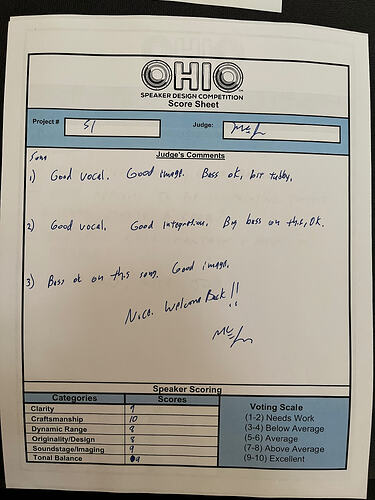 OHIO
SPEAKER DESIGN COMPETITION
Score Sheet
Project # 51 Judge:
Judge's Comments
Song
1) Good vocal. Good image. Bass ok, bit tubby.
2) Good vocal. Good integration. Big bass on this, OK.
3) Bass ok on this song. Good image.
Nice. Welcome Back!!
Speaker Scoring
Categories Scores Voting Scale
Clarity 9 (1-2) Needs Work
Craftsmanship 10 (3-4) Below Average
Dynamic Range 8 (5-6) Average
Originality/Design 8 (7-8) Above Average
Soundstage/Imaging 9 (9-10) Excellent
Tonal Balance 9